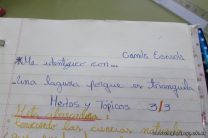 Camila Escuela
*Me identifico con...
una laguna porque es tranquila
Mertos y Tópicos 3/3
las ciencias